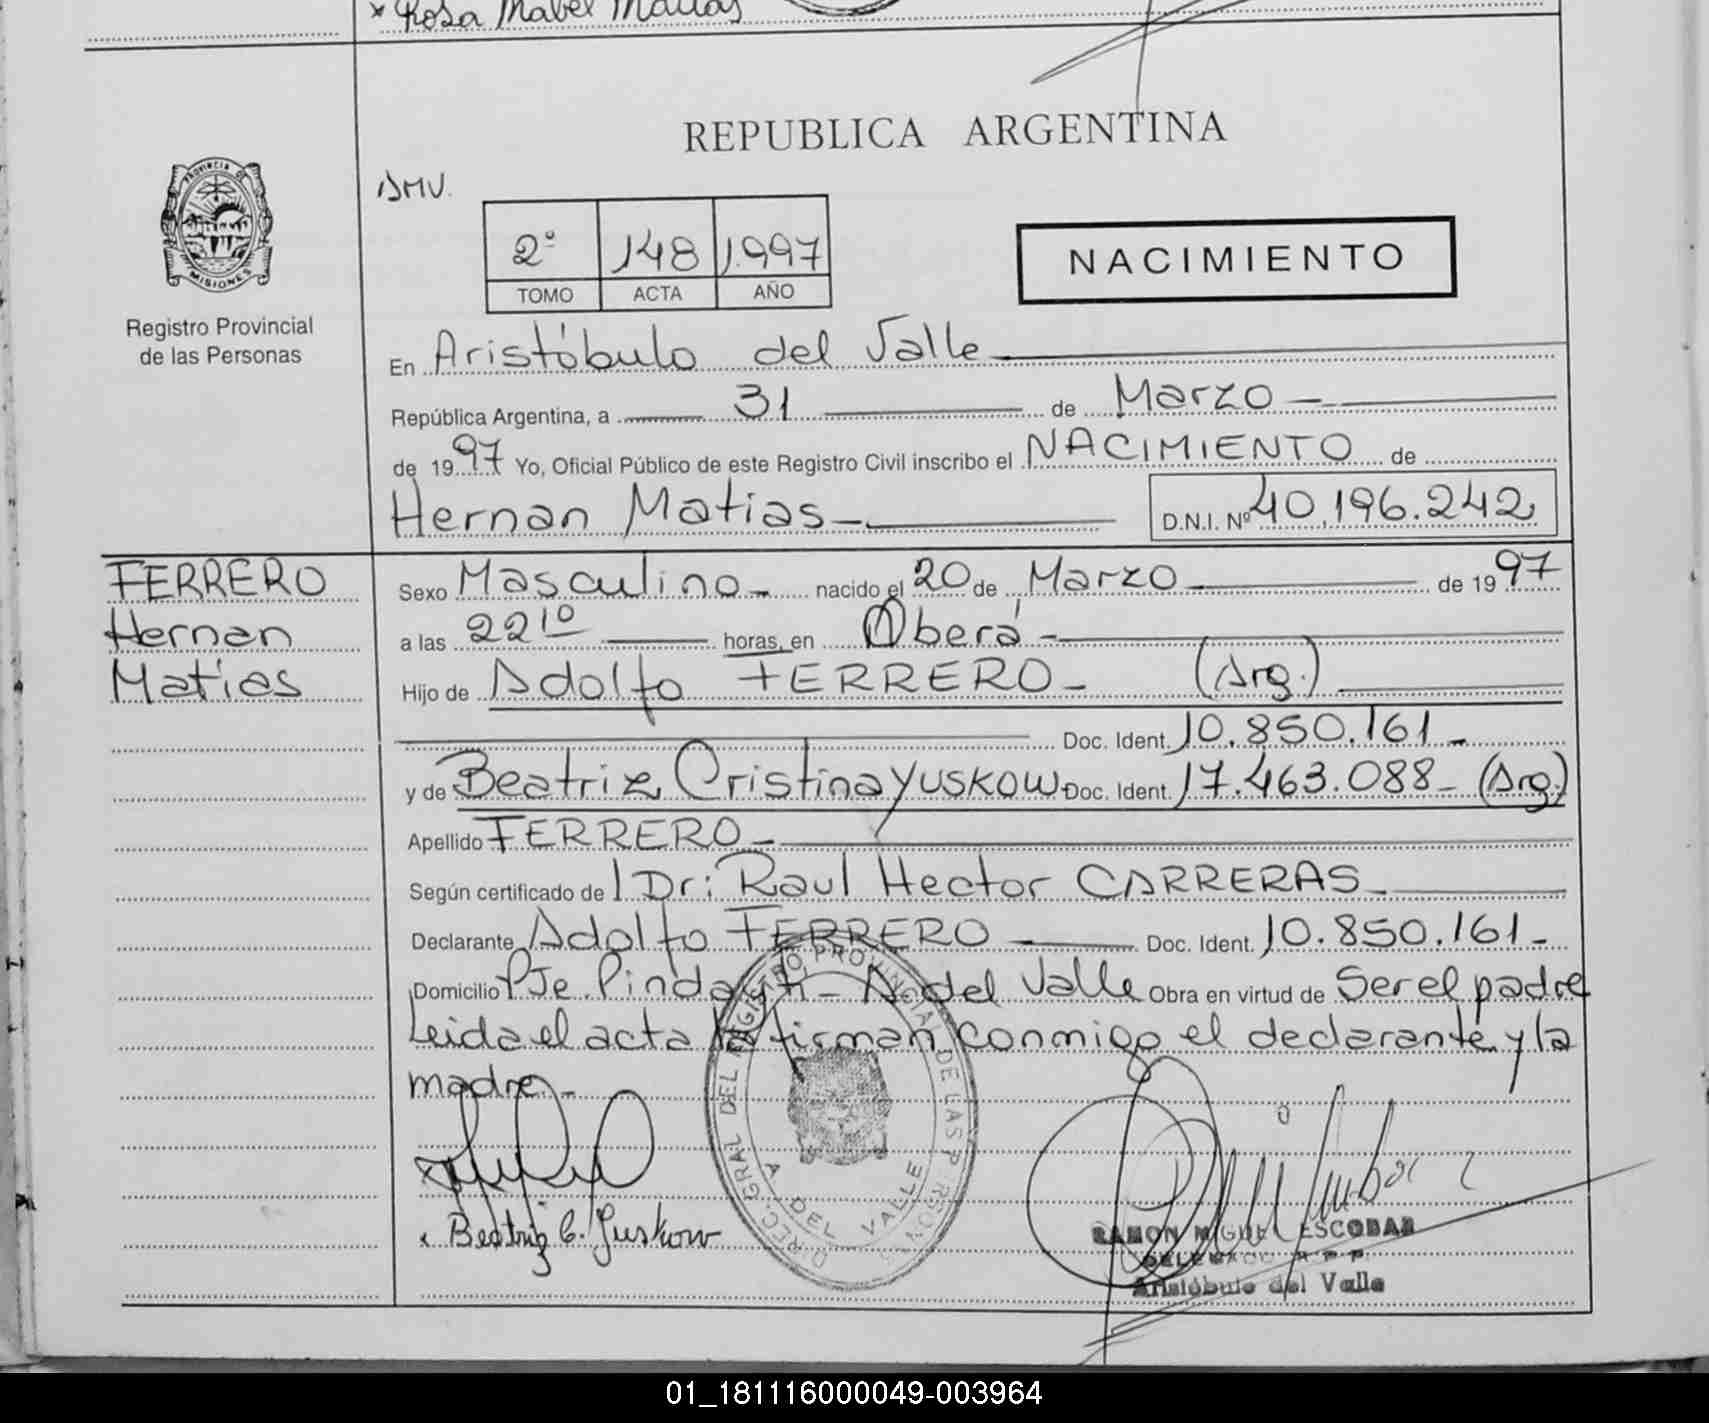 * Rosa Mabel Matias
REPUBLICA ARGENTINA
PROVINCIA DE
MISIONES
Registro Provincial
de las Personas
AMV.
2º 148 1.997
TOMO ACTA AÑO
NACIMIENTO
En Aristóbulo del Valle
República Argentina, a 31 de Marzo
de 1997 Yo, Oficial Público de este Registro Civil inscribo el NACIMIENTO de
Hernan Matias D.N.I. Nº 40.196.242
FERRERO
Hernan
Matias
Sexo Masculino nacido el 20 de Marzo de 1997
a las 22 10 horas, en Oberá
Hijo de Adolfo FERRERO (Arg.)
Doc. Ident. 10.850.161
y de Beatriz Cristina YUSKOW Doc. Ident. 17.463.088 (Arg)
Apellido FERRERO
Según certificado de Dr: Raul Hector CARRERAS
Declarante Adolfo FERRERO Doc. Ident. 10.850.161
Domicilio PJe Pindayti - A. del Valle Obra en virtud de Ser el padre
Leida el acta la firman conmigo el declarante y la
madre.
DIREC. GRAL DEL REGISTRO PROVINCIAL DE LAS PERSONAS
A. DEL VALLE
* Beatriz C. Yuskow
RAMON MIGUEL ESCOBAR
DELEGADO R P P
Aristóbulo del Valle
01_181116000049-003964